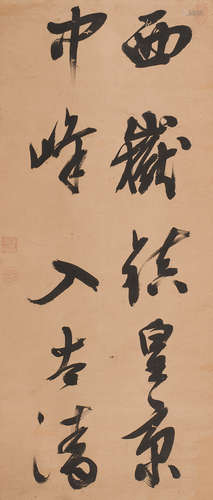 西嶽鎮皇京
中峰入太清